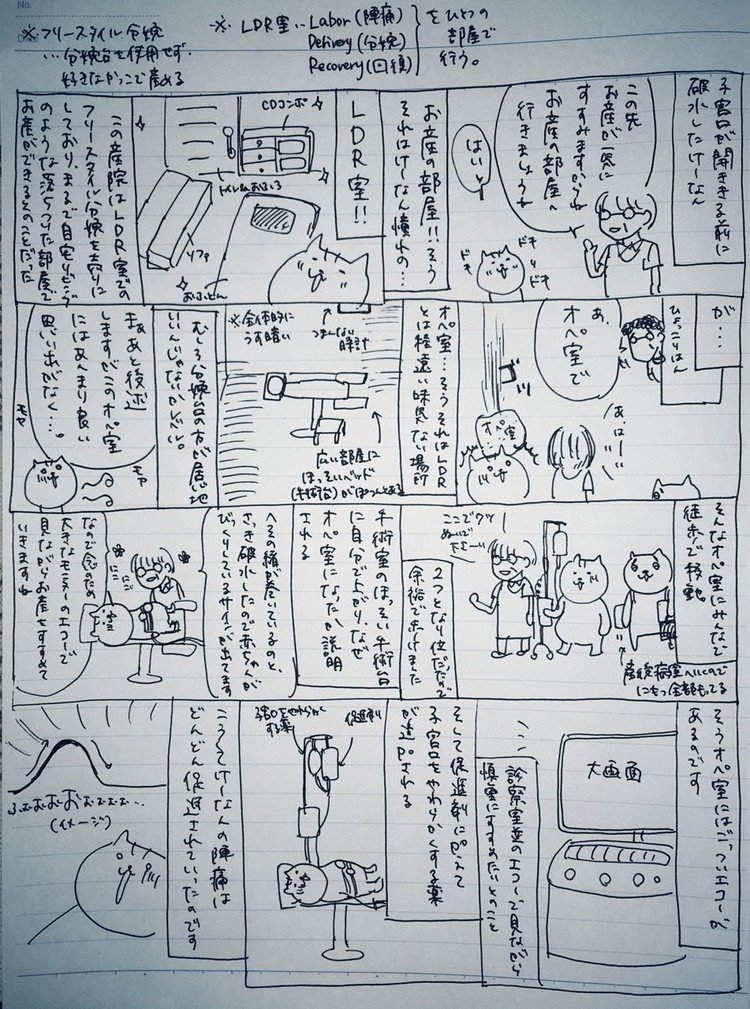 No.
※フリースタイル分娩
…分娩台を使用せず
好きなかっこで産める
※LDR室…Labor(陣痛)
Delivery(分娩)
Recovery(回復)
をひとつの
部屋で
行う。
子宮口が開ききる前に
破水したけーなん
この先
お産が一気に
すすみますからね
お産の部屋へ
行きましょうね
はいっ
ドキ
ドキ
ドキ
お産の部屋!!そう
それはけーなん憧れの…
LDR室!!
CDコンポ
トイレ
ソファ
おふとん
この産院はLDR室での
フリースタイル分娩を売りに
しており、まるで自宅リビング
のような落ちついた部屋で
お産ができるとのことだった
が…
ひょっこりはん
あ、
オペ室で
あ、はーい
ゴッ
オペ室
オペ室…そうそれはLDR
とは程遠い味気ない場所
※全体的に
うす暗い
つまんない
時計
広い部屋に
ほっそいベッド
(手術台)がぽつんとある
むしろ分娩台の方が居心地
いいんじゃないかレベル。
まぁあと後述
しますがこのオペ室
にはあんまり良い
思い出がなく…。
モヤ
モヤ
そんなオペ室にみんなで
徒歩で移動。
ここでクツ
ぬいで
下さーい
産後病室へいくので
にもつ全部もってる
2つとなり位だったので
余裕で歩けました
手術室のほっそい手術台
に自分で上がり、なぜ
オペ室になったか説明
される
へその緒が巻いているのと、
さっき破水したので赤ちゃんが
びっくりしているサインが出てます
なので念のため
大きなモニターのエコーで
見ながらお産をすすめて
いきますね
そうオペ室にはごっついエコーが
あるのです
大画面
診察室並のエコーで見ながら
慎重にすすめたいとのこと
そして促進剤に加えて
子宮口をやわらかくする薬
が追加される
子宮口をやわらかく
する薬
促進剤
こうしてけーなんの陣痛は
どんどん促進されていったのです
ふおおおおおおお…
(イメージ)